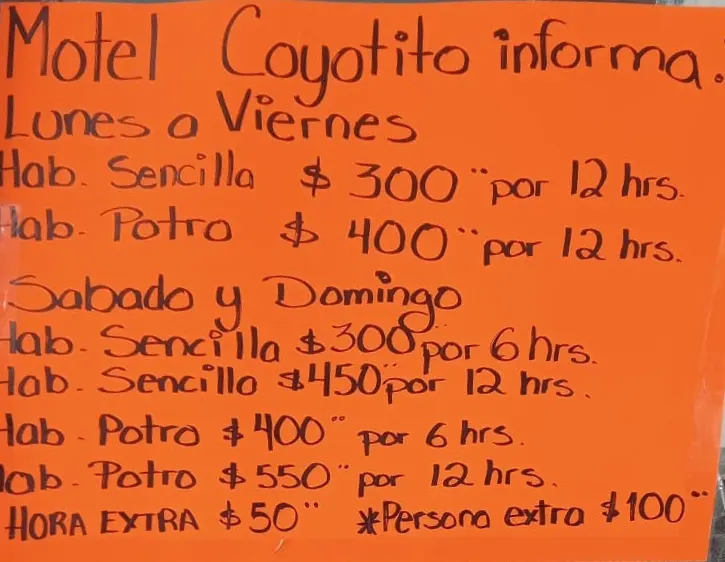 Motel Coyotito informa.
Lunes a Viernes
Hab. Sencilla $300" por 12 hrs.
Hab. Potro $400" por 12 hrs.
Sabado y Domingo
Hab. Sencilla $300 por 6 hrs.
Hab. Sencilla $450" por 12 hrs.
Hab. Potro $400" por 6 hrs.
Hab. Potro $550" por 12 hrs.
HORA EXTRA $50" *Persona extra $100"